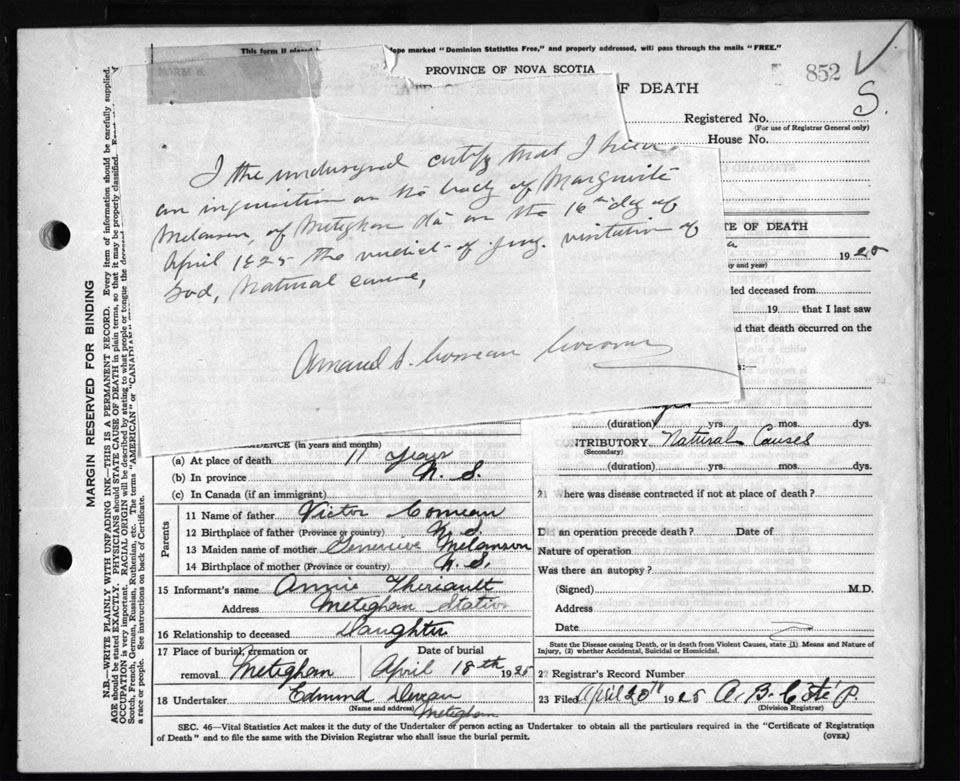 This form if placed
lope marked "Dominion Statistics Free," and properly addressed, will pass through the mails "FREE."
PROVINCE OF NOVA SCOTIA
852
S.
OF DEATH
Registered No.
(For use of Registrar General only)
House No.
I the undersigned certify that I
an inquisition on the body of Marguerite
Melanson, of Meteghan Sta on the 16th day of
April 1925 the verdict of jury. visitation of
God, Natural cause,
Amand S. Comeau Coroner
TE OF DEATH
1925
y and year)
ded deceased from
19 that I last saw
nd that death occurred on the
(duration) yrs. mos. dys.
CONTRIBUTORY Natural Causes
(Secondary)
(duration) yrs. mos. dys.
DENCE (in years and months)
(a) At place of death 11 years
(b) In province N. S.
(c) In Canada (if an immigrant)
Parents
11 Name of father Victor Comeau
12 Birthplace of father (Province or country) N. S.
13 Maiden name of mother Genevieve Melanson
14 Birthplace of mother (Province or country) N. S.
15 Informant's name Annie Theriault
Address Meteghan Station
16 Relationship to deceased Daughter
17 Place of burial, cremation or removal Meteghan
Date of burial April 18th 1925
18 Undertaker Edmund Deveau
(Name and address) Meteghan
21 Where was disease contracted if not at place of death?
Did an operation precede death? Date of
Nature of operation
Was there an autopsy?
(Signed) M.D.
Address
Date
State the Disease causing Death, or in death from Violent Causes, state (1) Means and Nature of
Injury, (2) whether Accidental, Suicidal or Homicidal.
22 Registrar's Record Number
23 Filed April 20th 1925 A. B.
(Division Registrar)
SEC. 46—Vital Statistics Act makes it the duty of the Undertaker or person acting as Undertaker to obtain all the particulars required in the "Certificate of Registration
of Death" and to file the same with the Division Registrar who shall issue the burial permit.
(OVER)
MARGIN RESERVED FOR BINDING
N.B.—WRITE PLAINLY WITH UNFADING INK—THIS IS A PERMANENT RECORD. Every item of information should be carefully supplied.
AGE should be stated EXACTLY. PHYSICIANS should STATE CAUSE OF DEATH in plain terms, so that it may be properly classified.
OCCUPATION is very important. RACIAL ORIGIN will be described by stating to what people or tongue the deceased
Scotch, French, German, Russian, Ruthenian, etc. The terms "AMERICAN" or "CANADIAN"
a race or people. See instructions on back of Certificate.